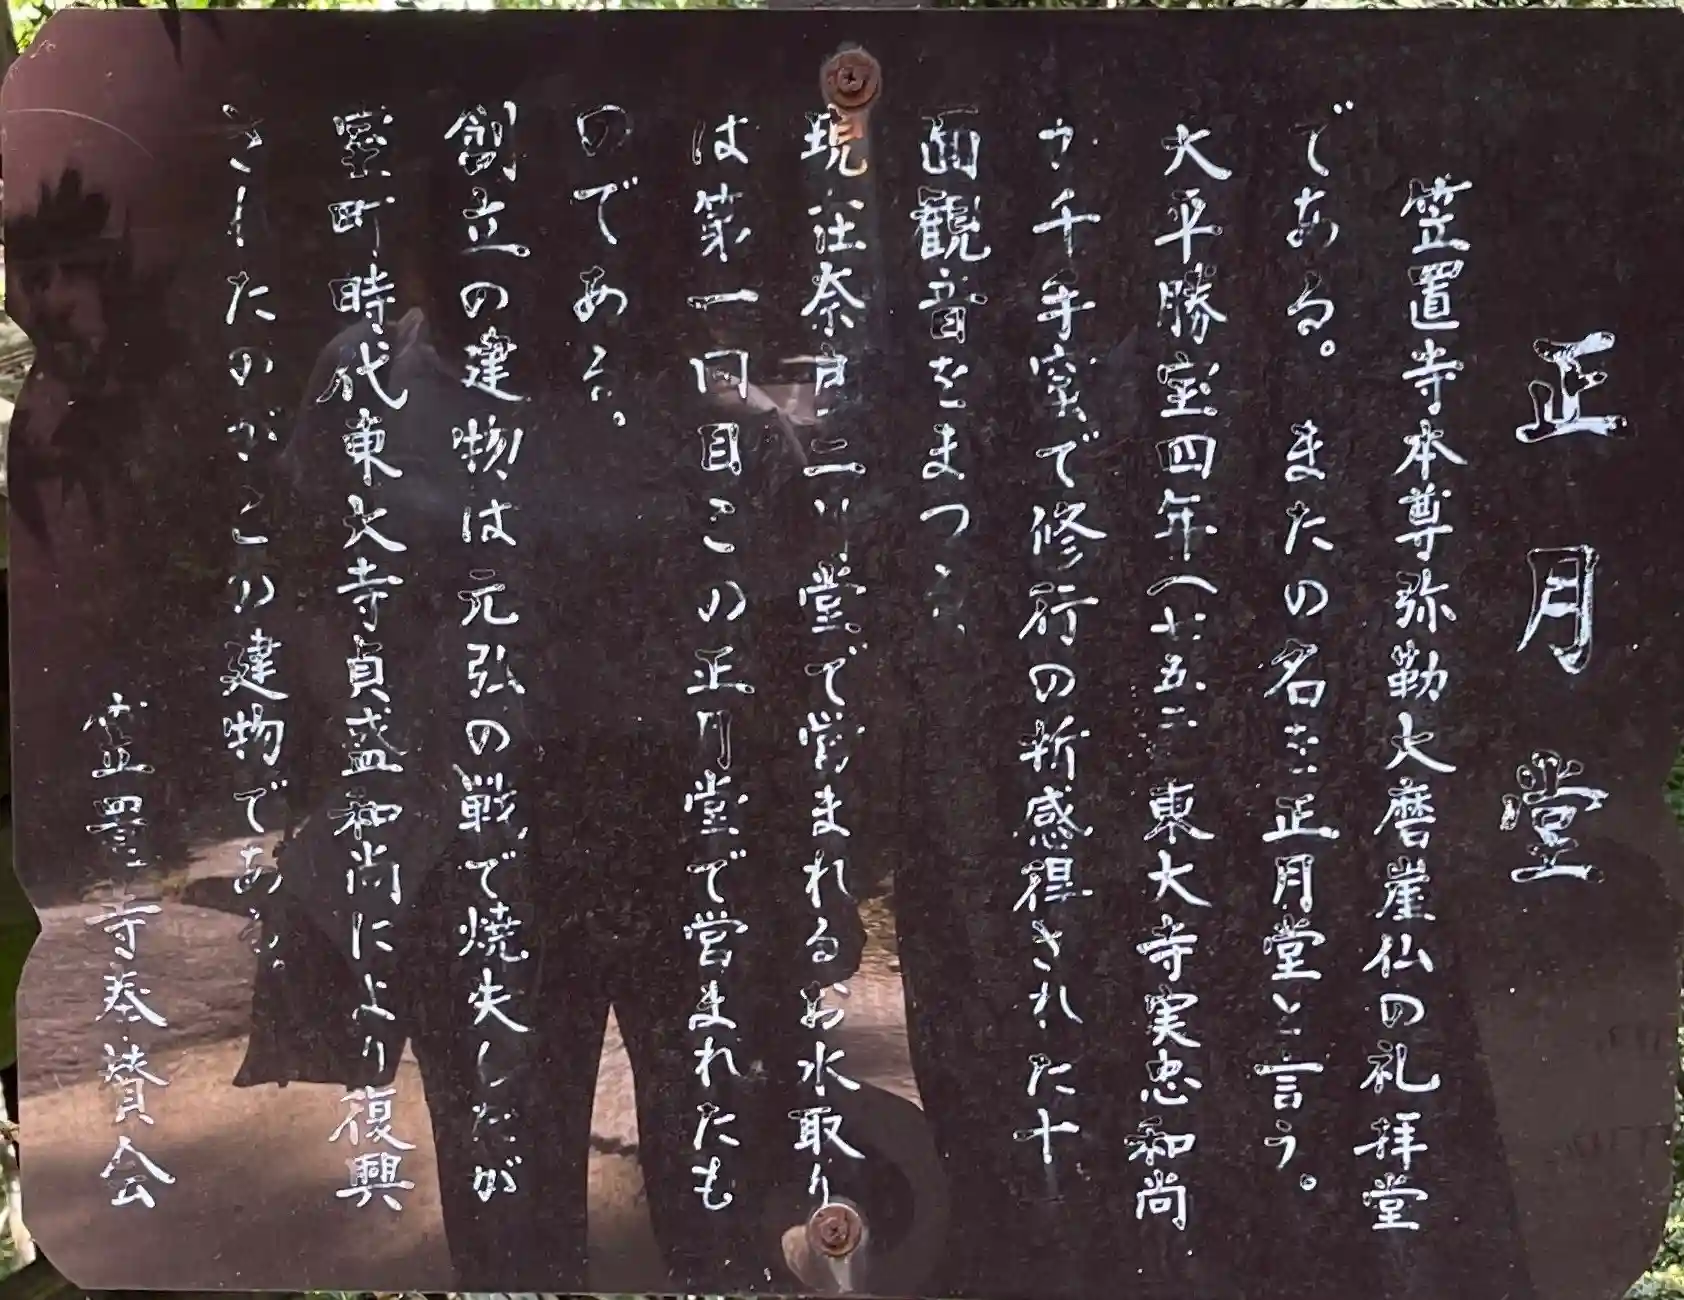 正月堂
笠置寺本尊弥勒大磨崖仏の礼拝堂
である。またの名を正月堂と言う。
大平勝宝四年(七五二 東大寺実忠和尚
が千手窟で修行の折感得された十
面観音をまつる
現在奈良二月堂で営まれるお水取り
は第一回目この正月堂で営まれたも
のである。
創立の建物は元弘の戦で焼失したが
室町時代東大寺貞盛和尚により復興
されたのがこの建物である。
笠置寺奉賛会